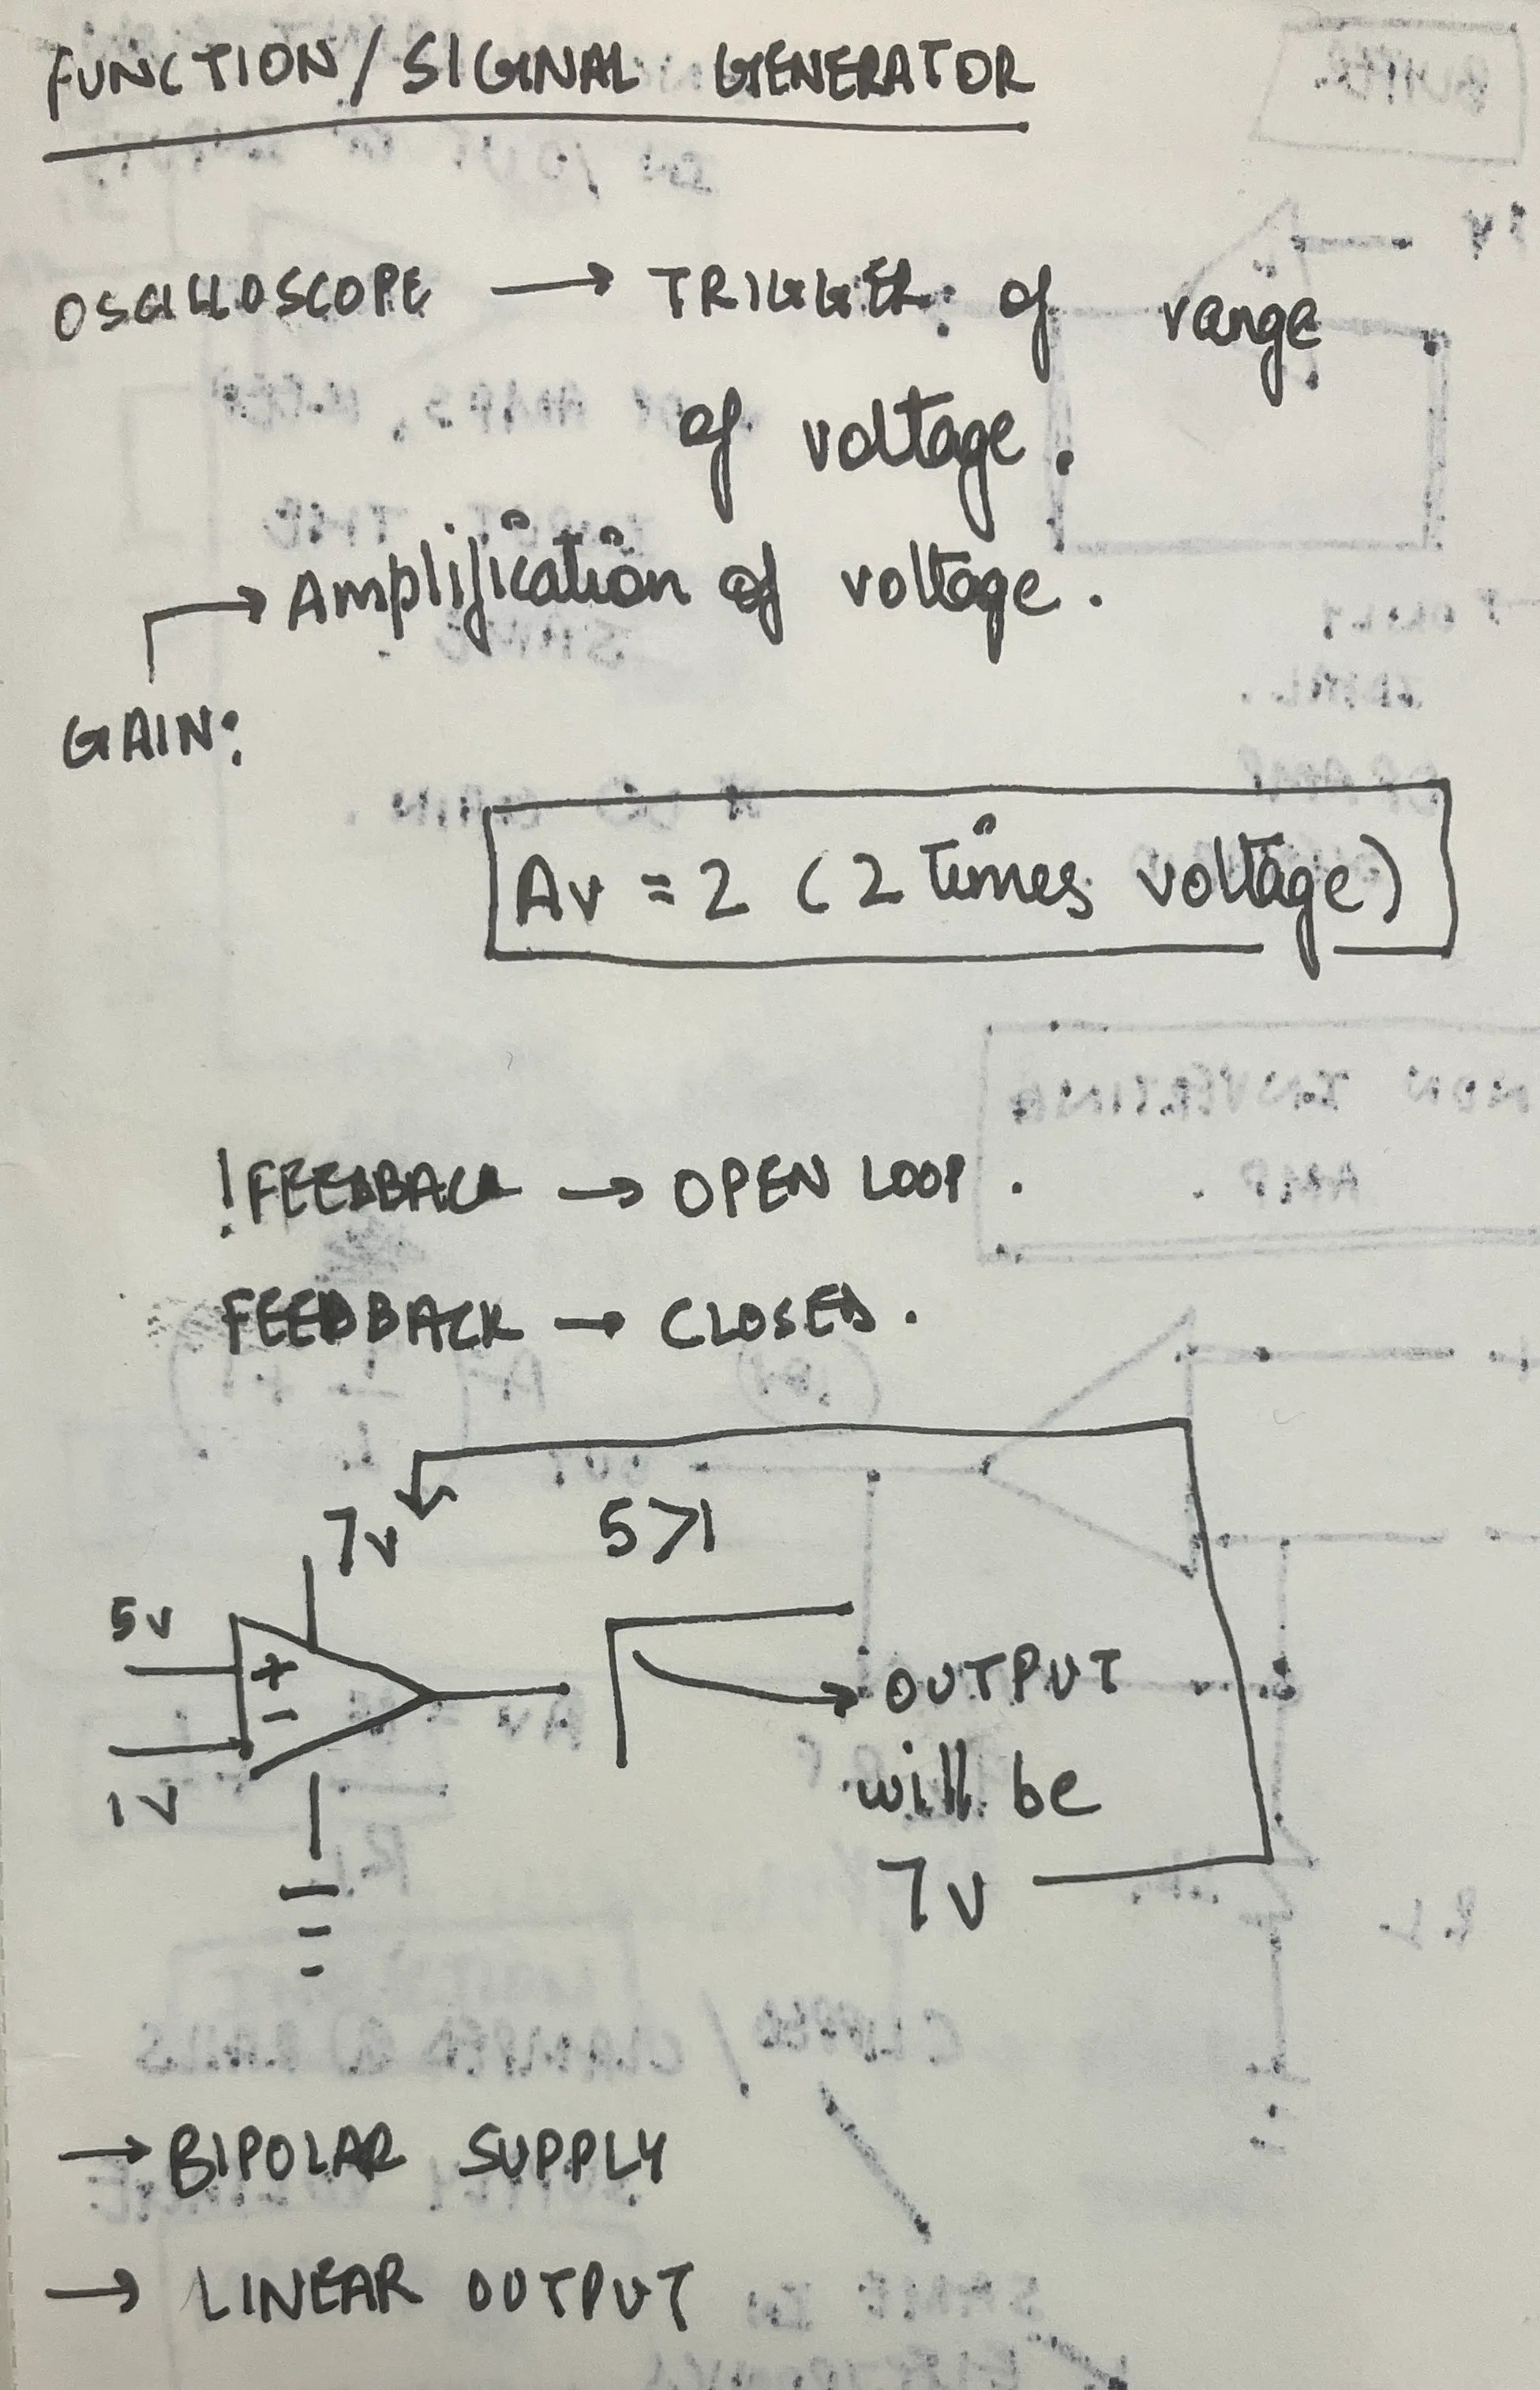 FUNCTION / SIGNAL GENERATOR
OSCILLOSCOPE → TRIGGER of range
of voltage.
→ Amplification of voltage.
GAIN:
Av = 2 (2 times voltage)
!FEEDBACK → OPEN LOOP.
FEEDBACK → CLOSED.
7v
5>1
5v
+
-
1v
OUTPUT
will be
7v
→ BIPOLAR SUPPLY
→ LINEAR OUTPUT